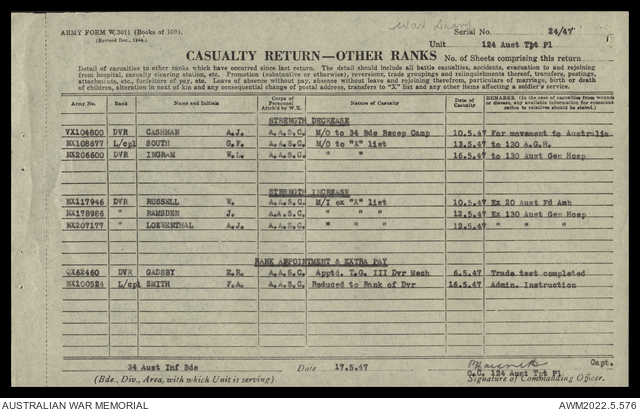 War Diary
ARMY FORM W.3011 (Books of 100).
(Revised Dec., 1944.)
Serial No. 24/47
Unit 124 Aust Tpt Pl
CASUALTY RETURN—OTHER RANKS
No. of Sheets comprising this return
Detail of casualties to other ranks which have occurred since last return. The detail should include all battle casualties, accidents, evacuation to and rejoining
from hospital, casualty clearing station, etc. Promotion (substantive or otherwise), reversions, trade groupings and relinquishments thereof, transfers, postings,
attachments, etc., forfeiture of pay, etc. Leave of absence without pay, absence without leave and rejoining therefrom, particulars of marriage, birth or death
of children, alteration in next of kin and any consequential change of postal address, transfers to "X" list and any other items affecting a soldier's service.
Army No. Rank Name and Initials Corps of Personnel Attach'd by W.E. Nature of Casualty Date of Casualty REMARKS. (In the case of casualties from wounds or disease, any available information for communication to relatives should be stated.)
STRENGTH DECREASE
VX104800 DVR CASHMAN A.J. A.A.S.C. M/O to 34 Bde Recep Camp 10.5.47 For movement to Australia
NX108677 L/cpl SOUTH G.F. A.A.S.C. M/O to "X" list 13.5.47 to 130 A.G.H.
NX206600 DVR INGRAM W.L. A.A.S.C. " " 16.5.47 to 130 Aust Gen Hosp
STRENGTH INCREASE
NX117946 DVR RUSSELL W. A.A.S.C. M/I ex "X" list 10.5.47 Ex 20 Aust Fd Amb
NX178986 " RAMSDEN J. A.A.S.C. " " " 12.5.47 Ex 130 Aust Gen Hosp
NX207177 " LOEWENTHAL A.J. A.A.S.C. " " " 12.5.47 " " "
RANK APPOINTMENT & EXTRA PAY
QX62460 DVR GADSBY E.R. A.A.S.C. Apptd. T.G. III Dvr Mech 6.5.47 Trade test completed
NX100524 L/cpl SMITH F.A. A.A.S.C. Reduced to Rank of Dvr 16.5.47 Admin. Instruction
34 Aust Inf Bde Date 17.5.47 Capt.
O.C. 124 Aust Tpt Pl
(Bde., Div., Area, with which Unit is serving) Signature of Commanding Officer.
AUSTRALIAN WAR MEMORIAL AWM2022.5.576